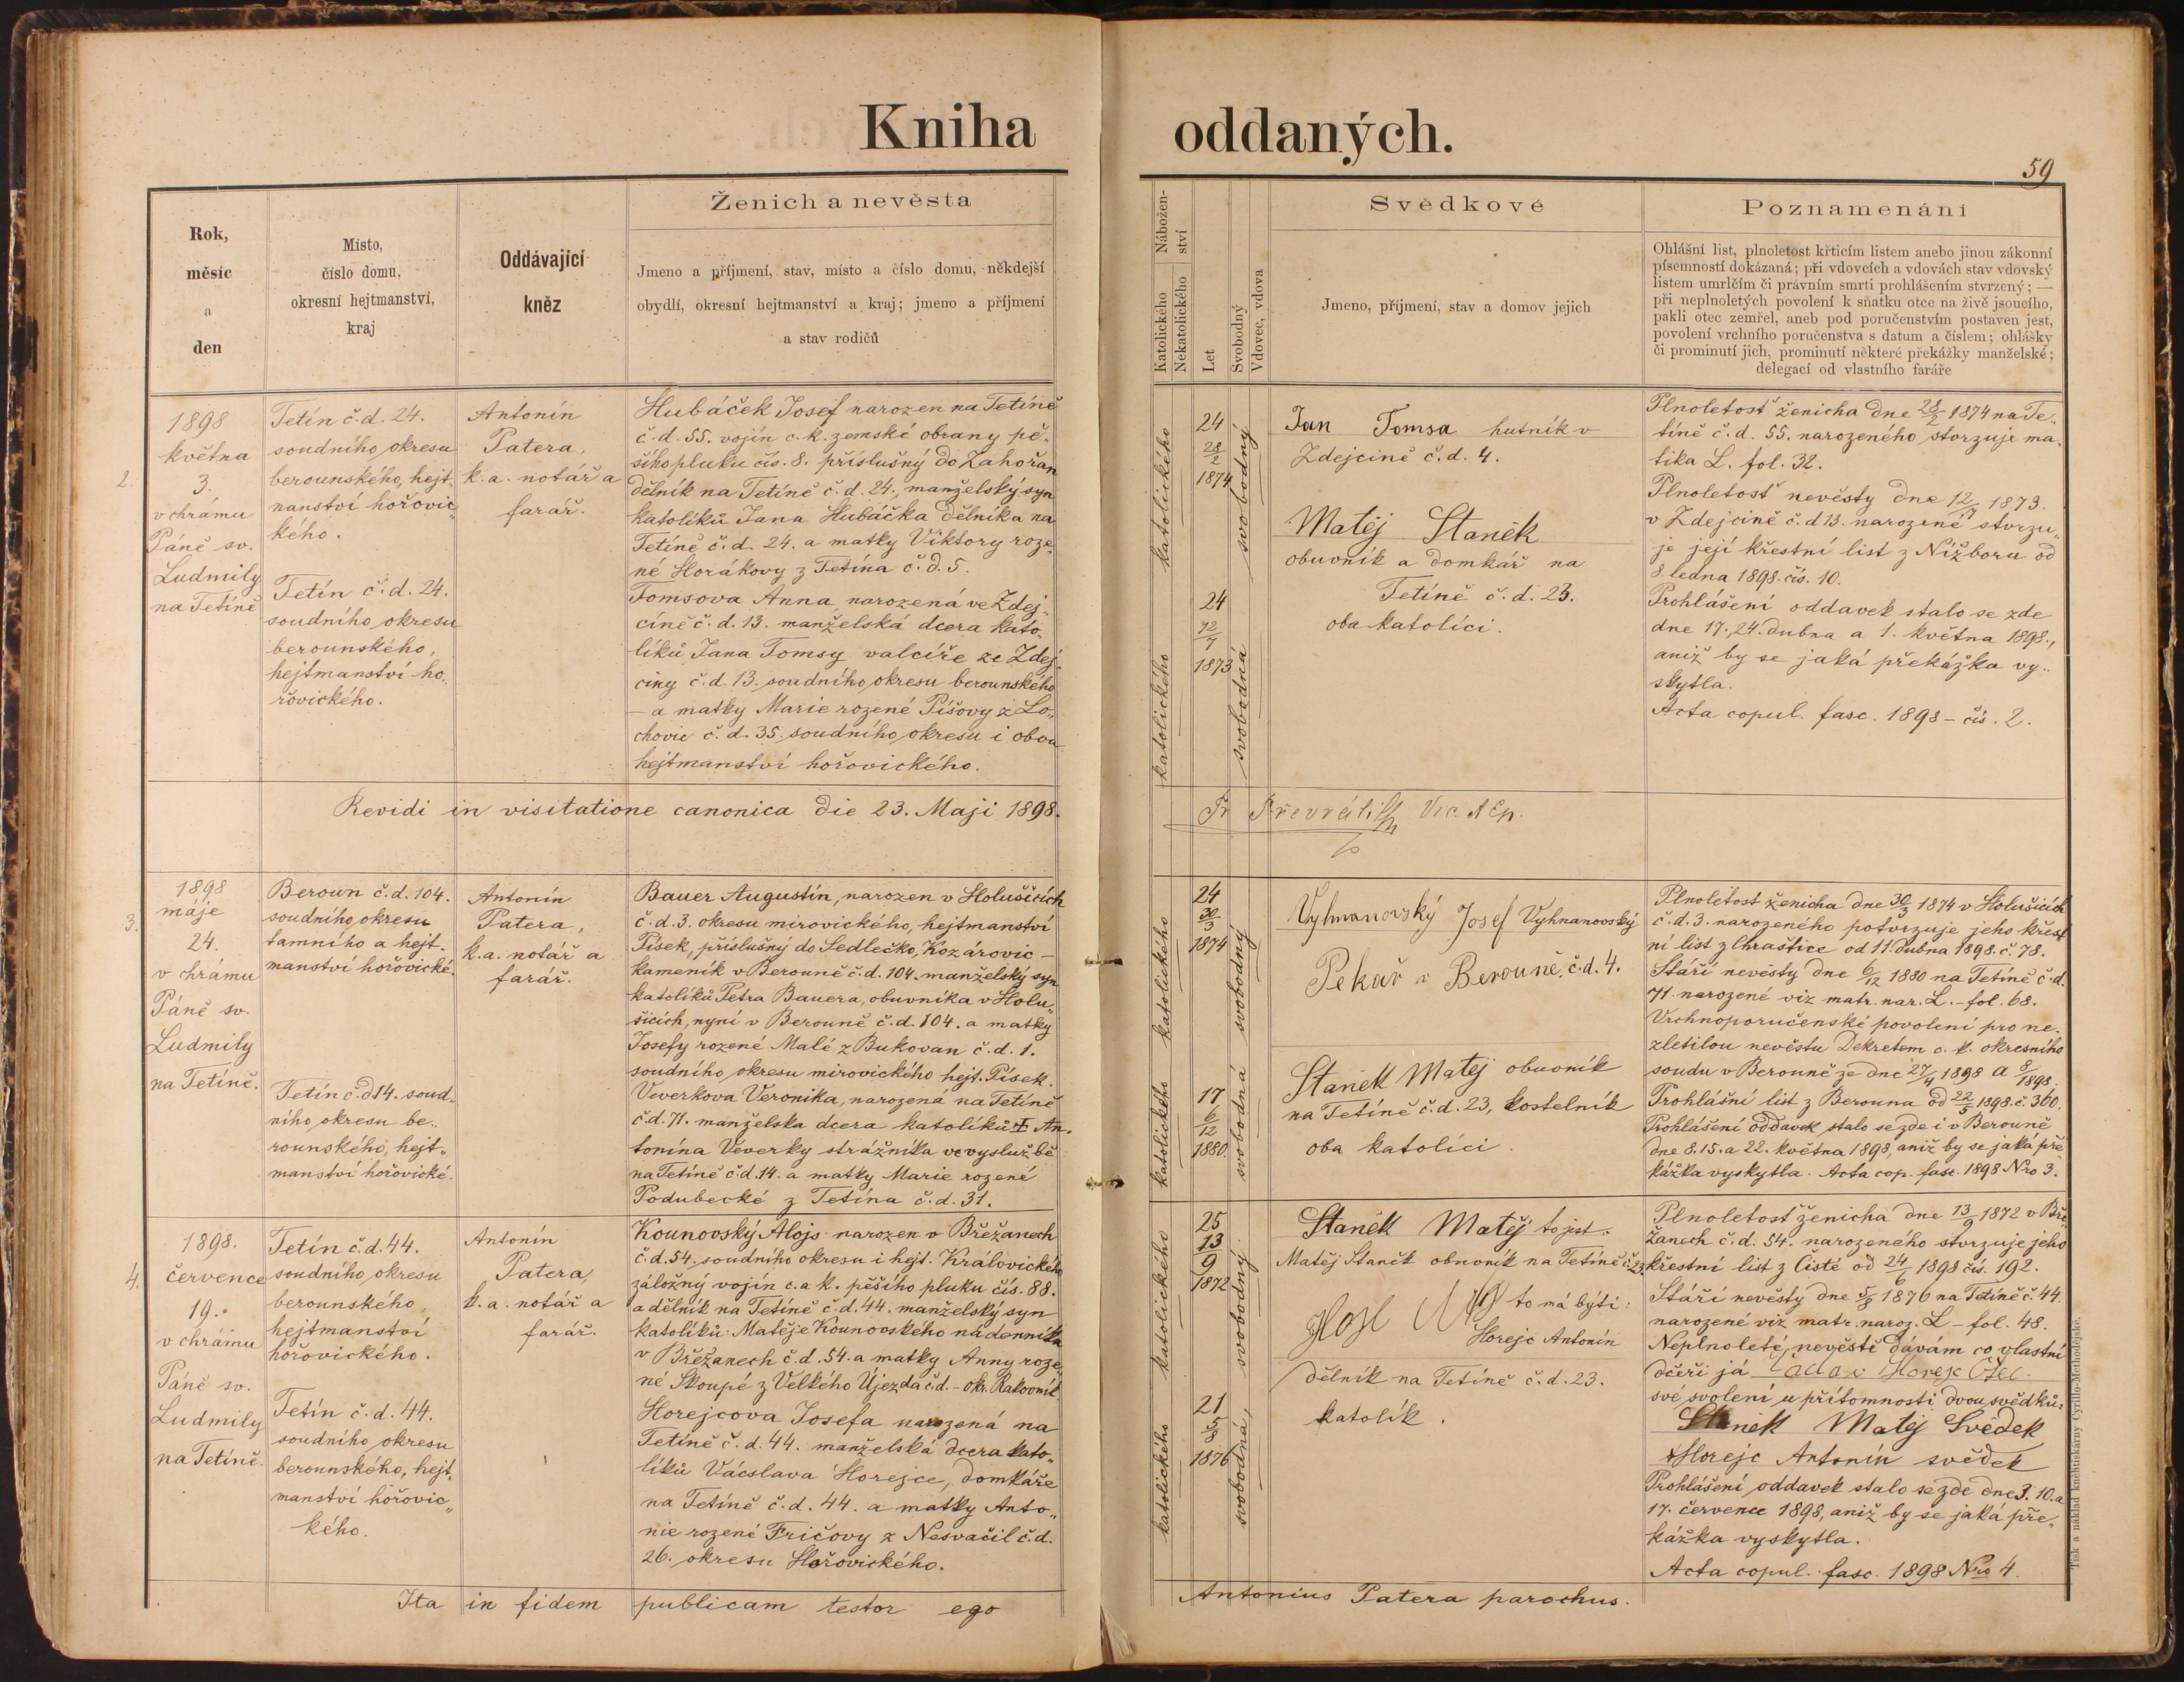 Kniha oddaných.
59
Rok,
měsíc
a
den
Místo,
číslo domu,
okresní hejtmanství,
kraj
Oddávající
kněz
Ženich a nevěsta
Jmeno a příjmení, stav, místo a číslo domu, někdejší
obydlí, okresní hejtmanství a kraj; jmeno a příjmení
a stav rodičů
Nábožen-
ství
Katolického
Nekatolického
Let
Svobodný
Vdovec, vdova
Svědkové
Jmeno, příjmení, stav a domov jejich
Poznamenání
Ohlášní list, plnoletost křticím listem anebo jinou zákonní
písemností dokázaná; při vdovcích a vdovách stav vdovský
listem umrlčím či právním smrti prohlášením stvrzený; —
při neplnoletých povolení k sňatku otce na živě jsoucího,
pakli otec zemřel, aneb pod poručenstvím postaven jest,
povolení vrchního poručenstva s datum a číslem; ohlášky
či prominutí jich, prominutí některé překážky manželské;
delegací od vlastního faráře
2.
1898
května
3.
v chrámu
Páně sv.
Ludmily
na Tetíně
Tetín č.d. 24.
soudního okresu
berounského, hejt.
nanství hořovic„
kého.
Tetín č.d. 24.
soudního okresu
berounského,
hejtmanství ho„
řovického.
Antonín
Patera,
k.a. notář a
farář.
Hubáček Josef narozen na Tetíně
č.d. 55. vojín c.k. zemské obrany pě„
šího pluku čís. 8. příslušný do Zahořan
dělník na Tetíně č.d. 24., manželský syn
katolíků Jana Hubáčka dělníka na
Tetíně č.d. 24. a matky Viktory roze„
né Horákovy z Tetína č.d. 5.
Tomsova Anna, narozená ve Zdej„
cíně č.d. 13. manželská dcera kato„
líků Jana Tomsy valcíře ze Zdej„
ciny č.d. 13. soudního okresu berounského
— a matky Marie rozené Píšovy z Lo„
chovic č.d. 35 soudního okresu i obou
hejtmanství hořovického.
katolického
24
28/2
1874
svobodný
katolického
24
12/7
1873
svobodná
Jan Tomsa hutník v
Zdejcině č.d. 4.
Matěj Staněk
obuvník a domkář na
Tetíně č.d. 23.
oba katolíci.
Plnoletosť ženicha dne 28/2 1874 na Te„
tíně č.d. 55. narozeného stvrzuje ma„
trika L. fol. 32.
Plnoletosť nevěsty dne 12/7 1873.
v Zdejcině č.d 13. narozené stvrzu„
je její křestní list z Nížboru od
8. ledna 1898. čís. 10.
Prohlášení oddavek stalo se zde
dne 17., 24. dubna a 1. května 1898.,
aniž by se jaká překážka vy„
skytla.
Acta copul. fasc. 1898 – čís. 2.
Revidi in visitatione canonica die 23. Maji 1898.
3.
1898
máje
24.
v chrámu
Páně sv.
Ludmily
na Tetíně.
Beroun č.d. 104.
soudního okresu
tamního a hejt„
manství hořovické.
Tetín č.d 14. soud„
ního okresu be„
rounského, hejt„
manství hořovické.
Antonín
Patera,
k.a. notář a
farář.
Bauer Augustin, narozen v Holušicích
č.d. 3. okresu mirovického, hejtmanství
Písek, příslušný do Sedlečko, Kozárovic –
kameník v Berouně č.d. 104. manželský syn
katolíků Petra Bauera, obuvníka v Holu„
šicích, nyní v Berouně č.d. 104. a matky
Josefy rozené Malé z Bukovan č.d. 1.
soudního okresu mirovického hejt. Písek.
Veverkova Veronika, narozena na Tetíně
č.d. 71. manželska dcera katolíků † An„
tonína Veverky strážníka ve výslužbě
na Tetíně č.d. 14. a matky Marie rozené
Podubecké z Tetína č.d. 31.
katolického
24
30/3
1874
svobodný
katolického
17
6/12
1880
svobodná
Josef Vyhnanovský
Pekař v Berouně, č.d. 4.
Staněk Matěj obuvník
na Tetíně č.d. 23, kostelník
oba katolíci.
Plnoletost ženicha dne 30/3 1874 v Holušicích
č.d. 3. narozeného potvrzuje jeho křest
ní list z Chraštice od 11. dubna 1898. č. 78.
Stáří nevěsty dne 6/12 1880 na Tetíně č.d.
71. narozené viz matr. nar. L. – fol. 68.
Vrchnoporučenské povolení pro ne„
zletilou nevěstu Dekretem c. k. okresního
soudu v Berouně ze dne 27/4 1898
Prohlášní list z Berouna od 22/5 1898. č. 360.
Prohlášení oddavek stalo se zde i v Berouně
dne 8. 15. a 22. května 1898, aniž by se jaká pře
kážka vyskytla. Acta cop. fasc. 1898 Nro 3.
4.
1898.
července
19.
v chrámu
Páně sv.
Ludmily
na Tetíně.
Tetín č.d. 44.
soudního okresu
berounského,
hejtmanství
hořovického.
Tetín č.d. 44.
soudního okresu
berounského, hejt.
manství hořovic„
kého.
Antonín
Patera,
k.a. notář a
farář.
Kounovský Alojs narozen v Břežanech
č.d. 54. soudního okresu i hejt. Královického
záložný vojín c. a k. pěšího pluku čís. 88.
a dělník na Tetíně č.d. 44. manželský syn
katolíků Matěje Kounovského nádenníka
v Břežanech č.d. 54. a matky Anny roze„
né Skoupé z Velkého Újezda č.d. – okr. Rakovník.
Horejcova Josefa narozená na
Tetíně č.d. 44. manželská dcera kato„
líků Václava Horejce, domkáře
na Tetíně č.d. 44. a matky Anto„
nie rozené Fričovy z Nesvačil č.d.
26. okresu Hořovického.
katolického
25
13
9
1872
svobodný
katolického
21
5/8
1876
svobodná,
Staněk Matěj to jest:
Matěj Staněk obuvník na Tetíně č. 23.
to má býti:
Horejc Antonín
dělník na Tetíně č.d. 23.
katolík.
Plnoletosť ženicha dne 13/9 1872 v Bře„
žanech č.d. 54. narozeného stvrzuje jeho
křestní list z Čisté od 24/6 1898 čís. 192.
Stáří nevěsty dne 5/8 1876 na Tetíně č. 44.
narozené viz matr. naroz. L – fol. 48.
Neplnoleté, nevěstě dávám co vlastní
dceři já Horejc Otec.
své svolení u přítomnosti dvou svědků:
Staněk Matěj Svědek
Horejc Antonín svědek
Prohlášení oddavek stalo se zde dne 3. 10. a
17. července 1898, aniž by se jaká pře„
kážka vyskytla.
Acta copul. fasc. 1898 Nro 4.
Ita in fidem publicam testor ego Antonius Patera parochus.
Tisk a náklad knihtiskárny Cyrillo-Methodějské.